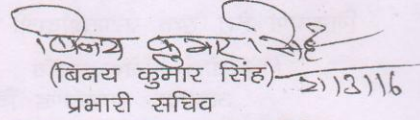 बिनय कुमार सिंह
(बिनय कुमार सिंह) 2113116
प्रभारी सचिव